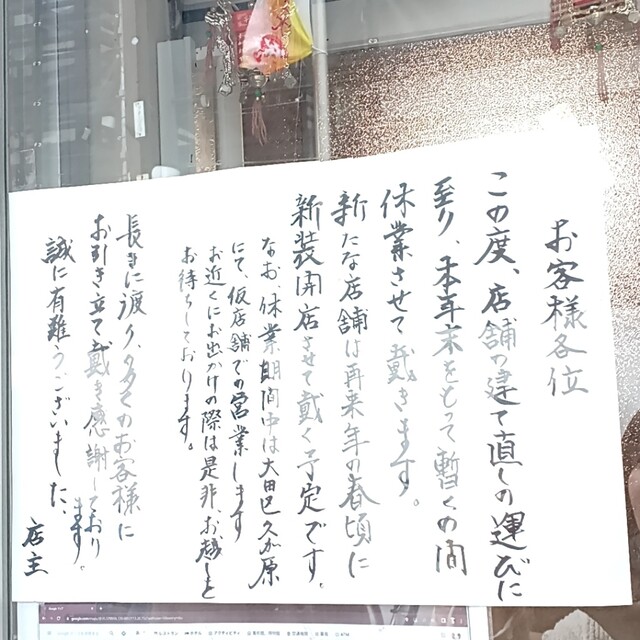 お客様各位
この度、店舗の建て直しの運びに
至り、本年末をもって暫くの間
休業させて戴きます。
新たな店舗は再来年の春頃に
新装開店させて戴く予定です。
なお、休業期間中は大田区久が原
にて、仮店舗での営業します
お近くにお出かけの際は是非、お越しを
お待ちしております。
長きに渡り、多くのお客様に
お引き立て戴き感謝しております。
誠に有難うございました。
店主